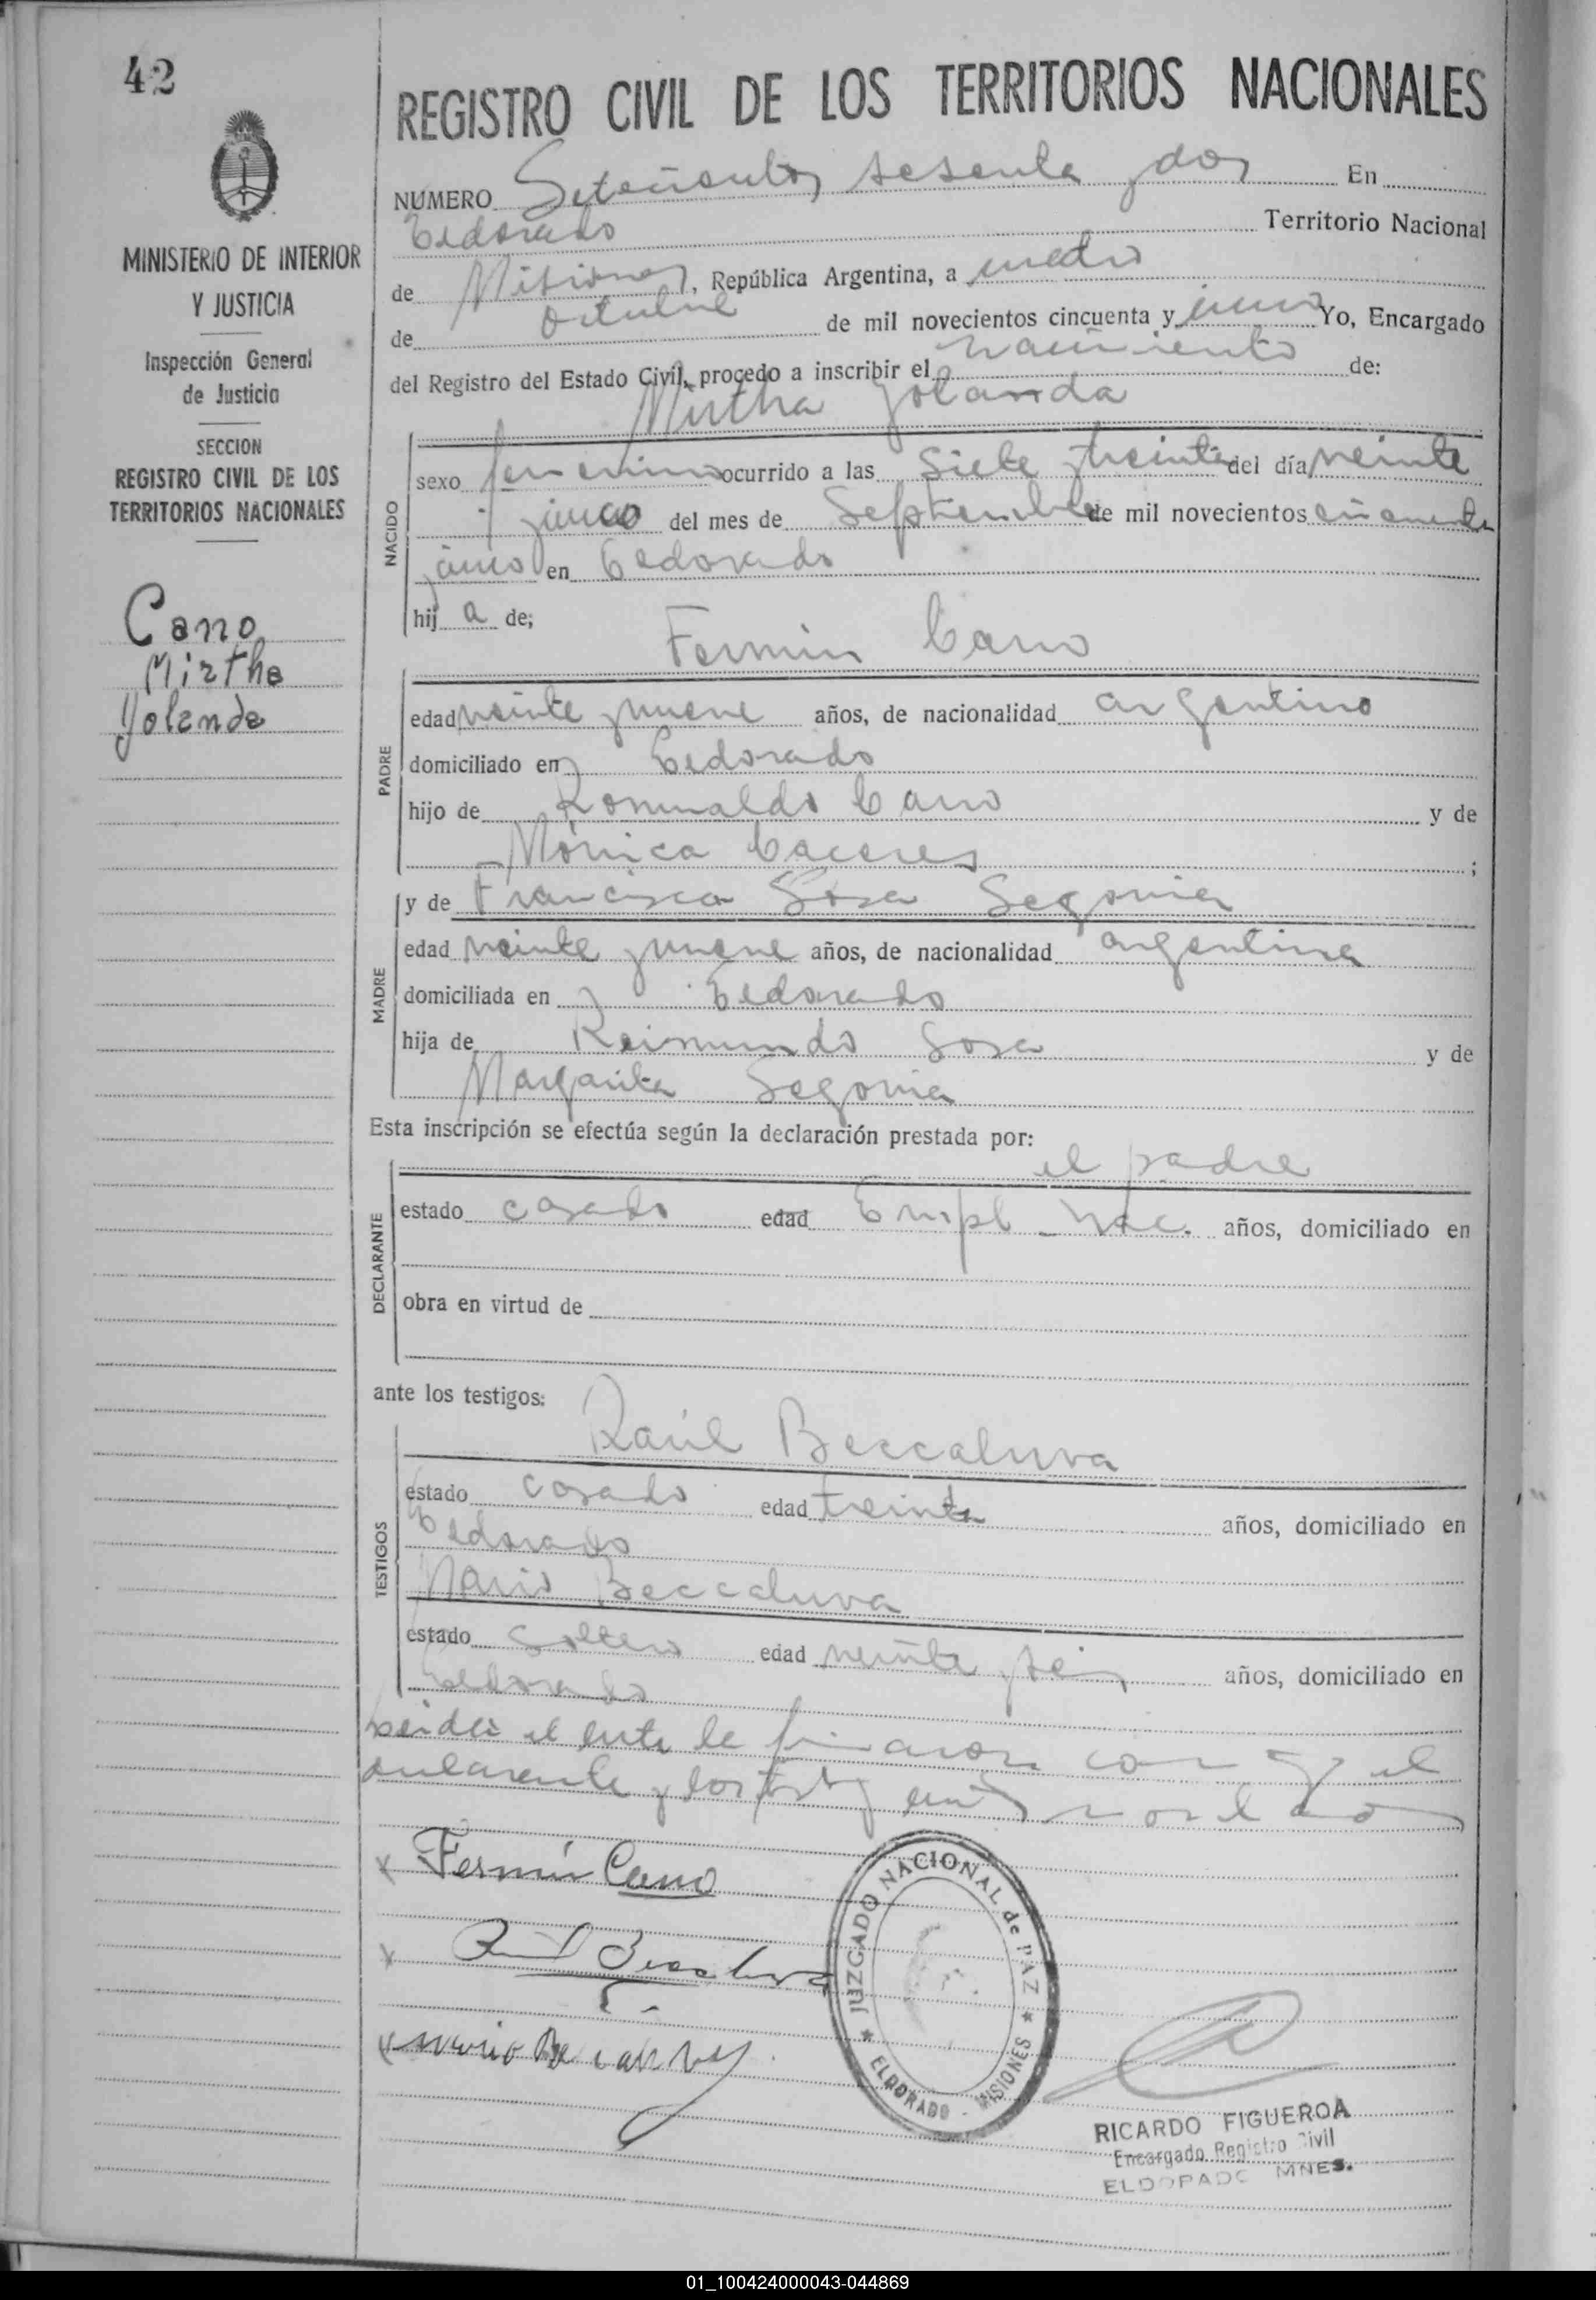 42
MINISTERIO DE INTERIOR
Y JUSTICIA
Inspección General
de Justicia
SECCION
REGISTRO CIVIL DE LOS
TERRITORIOS NACIONALES
Cano
Mirtha
Yolanda
REGISTRO CIVIL DE LOS TERRITORIOS NACIONALES
NUMERO Setecientos sesenta y dos En
Eldorado Territorio Nacional
de Misiones, República Argentina, a cuatro
de Octubre de mil novecientos cincuenta y uno Yo, Encargado
del Registro del Estado Civil, procedo a inscribir el nacimiento de:
Mirtha Yolanda
NACIDO
sexo femenino ocurrido a las siete y treinta del día veinte
y cinco del mes de Septiembre de mil novecientos cincuenta
y uno en Eldorado
hij a de;
Fermin Cano
PADRE
edad veinte y nueve años, de nacionalidad argentino
domiciliado en Eldorado
hijo de Romualdo Cano y de
Mónica Caceres ;
y de Francisca Sosa Segovia
MADRE
edad veinte y nueve años, de nacionalidad argentina
domiciliada en Eldorado
hija de Raimundo Sosa y de
Margarita Segovia
Esta inscripción se efectúa según la declaración prestada por:
el padre
DECLARANTE
estado casado edad Empl. Nac. años, domiciliado en
obra en virtud de
ante los testigos:
Raúl Beccaluva
TESTIGOS
estado casado edad treinta años, domiciliado en
Eldorado
Mario Beccaluva
estado soltero edad veinte y seis años, domiciliado en
Eldorado
el acta la firmaron con el
declarante y los
x Fermín Cano
x Beccaluva
x Mario
JUZGADO NACIONAL de PAZ
ELDORADO - MISIONES
RICARDO FIGUEROA
Encargado Registro Civil
ELDORADO MNES.
01_100424000043-044869